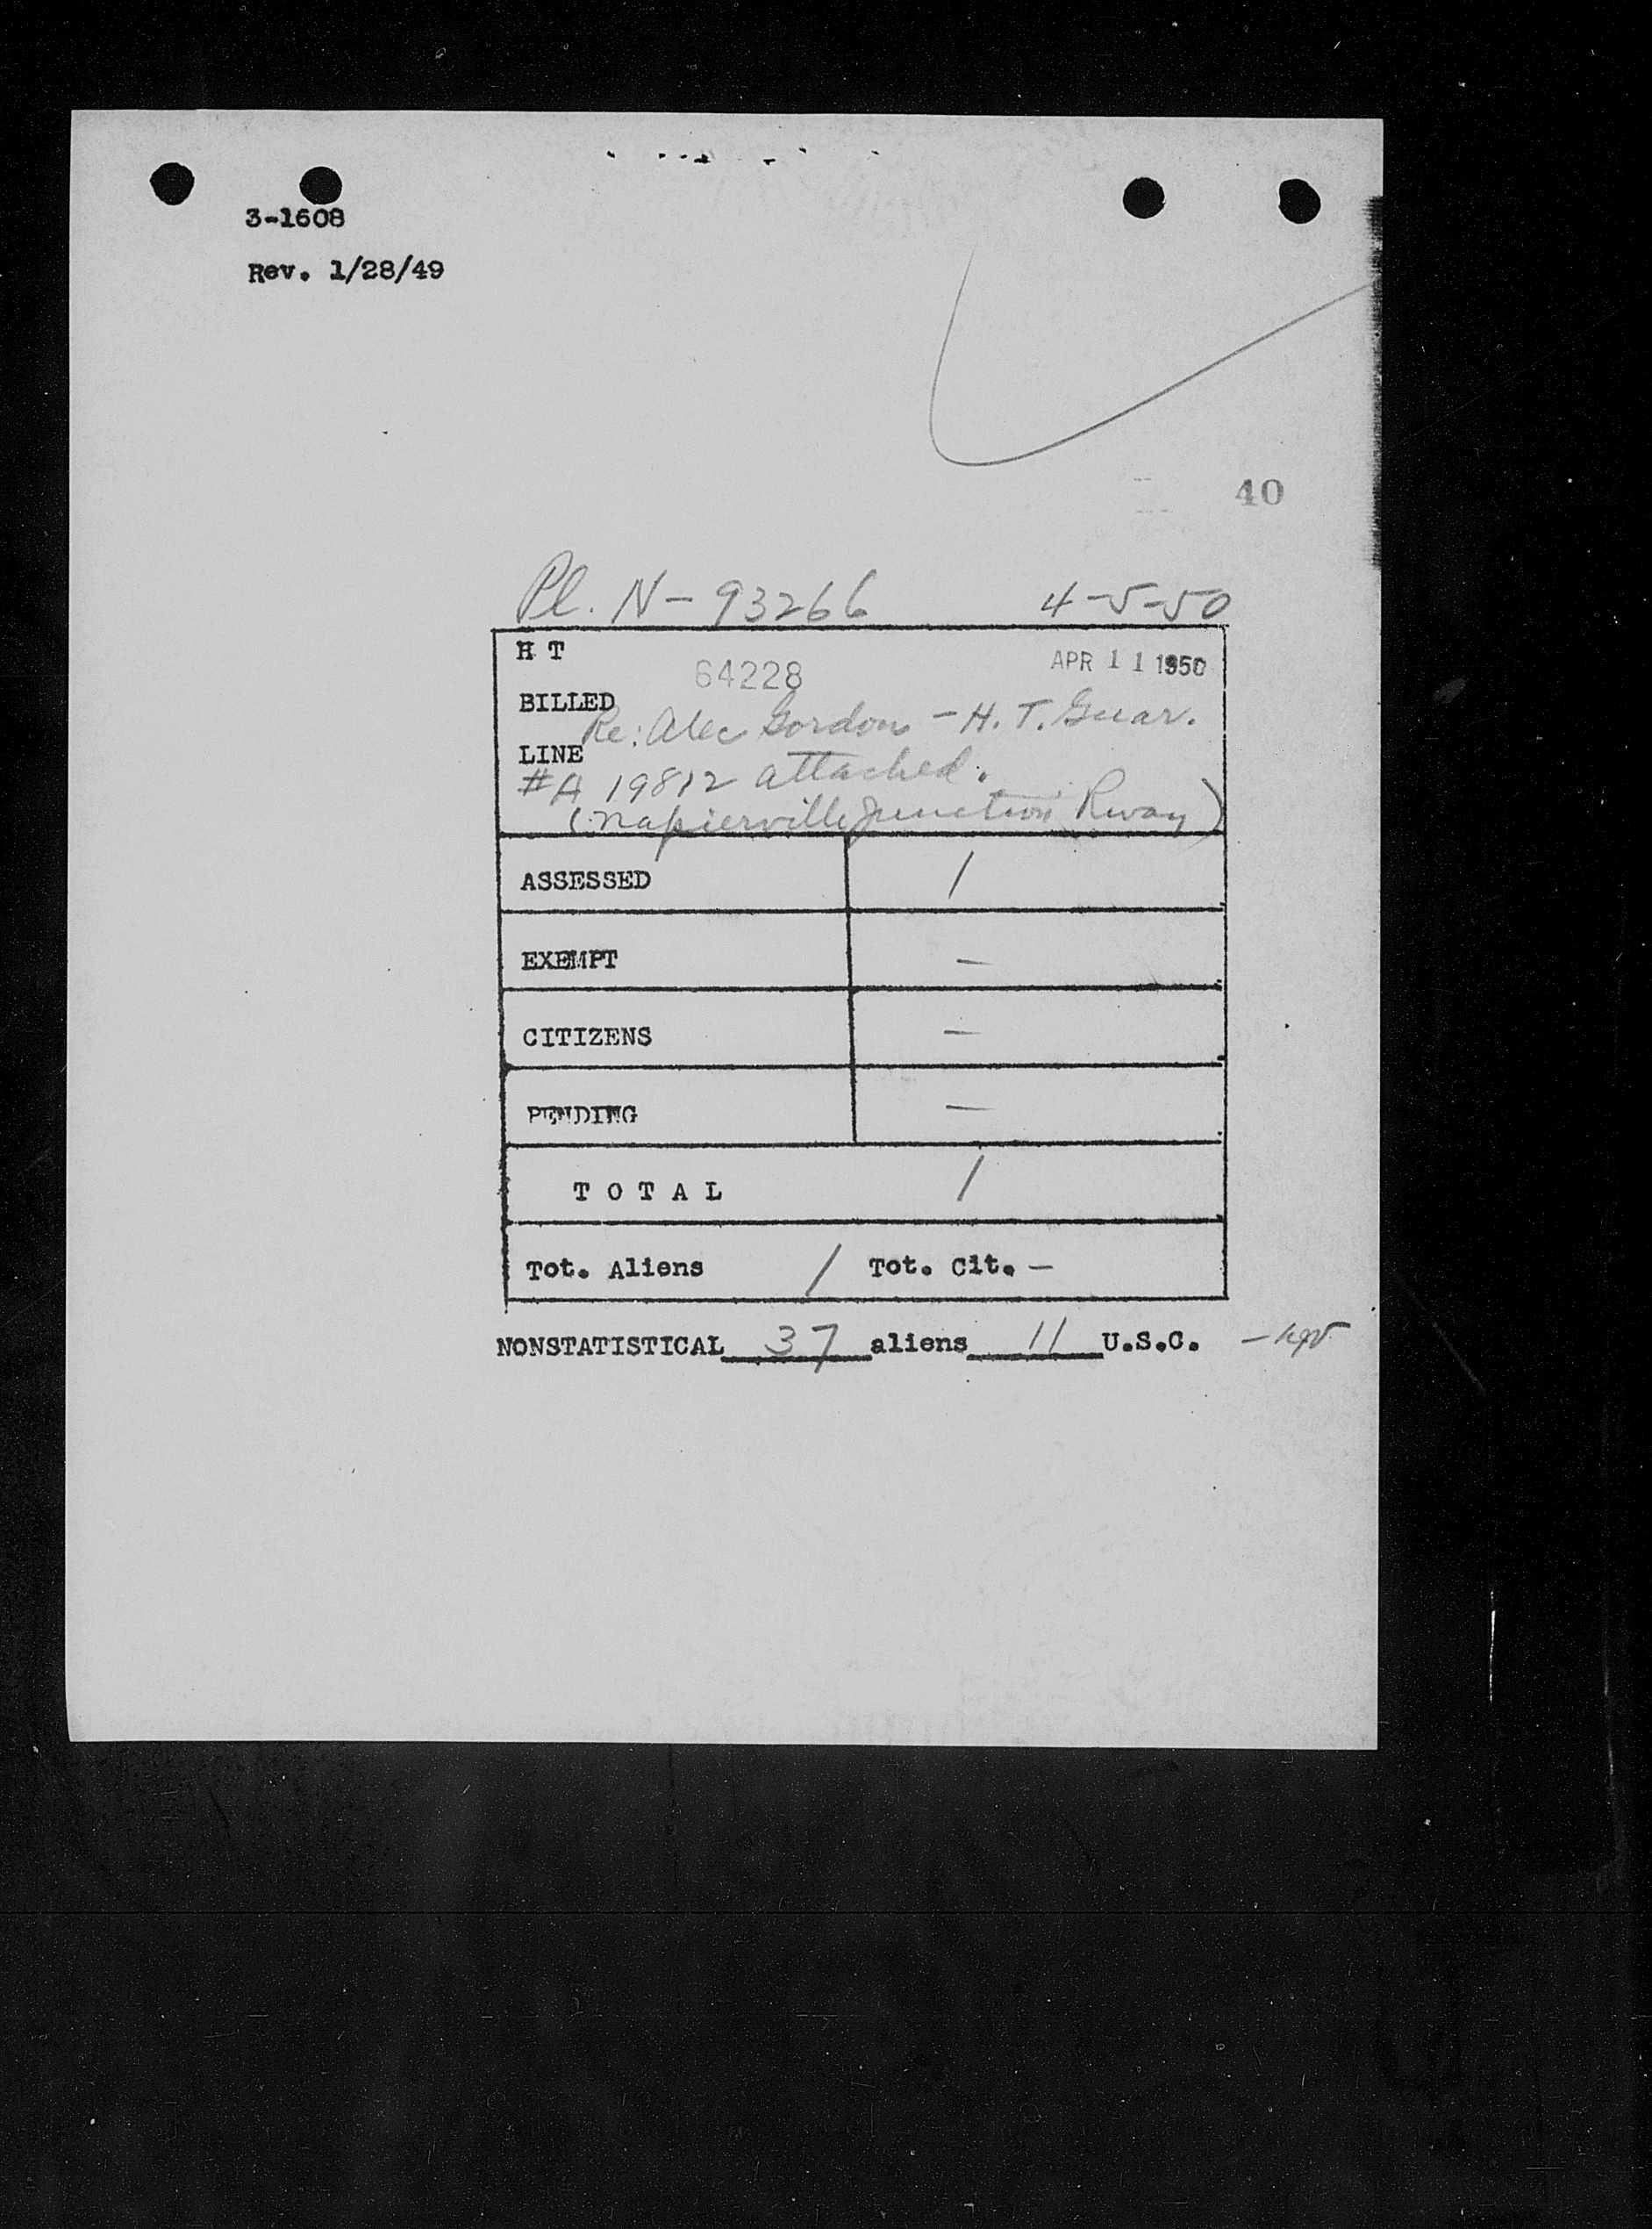 3-1608
Rev. 1/28/49
40
Pl. N-93266 4-5-50
H T
64228 APR 11 1950
BILLED
Re: Alec Gordon - H. T. Guar.
LINE
#A 19812 attached.
(Napierville Junction Rway)
ASSESSED 1
EXEMPT —
CITIZENS —
PENDING —
T O T A L 1
Tot. Aliens 1 Tot. Cit. —
NONSTATISTICAL 37 aliens 11 U.S.C.